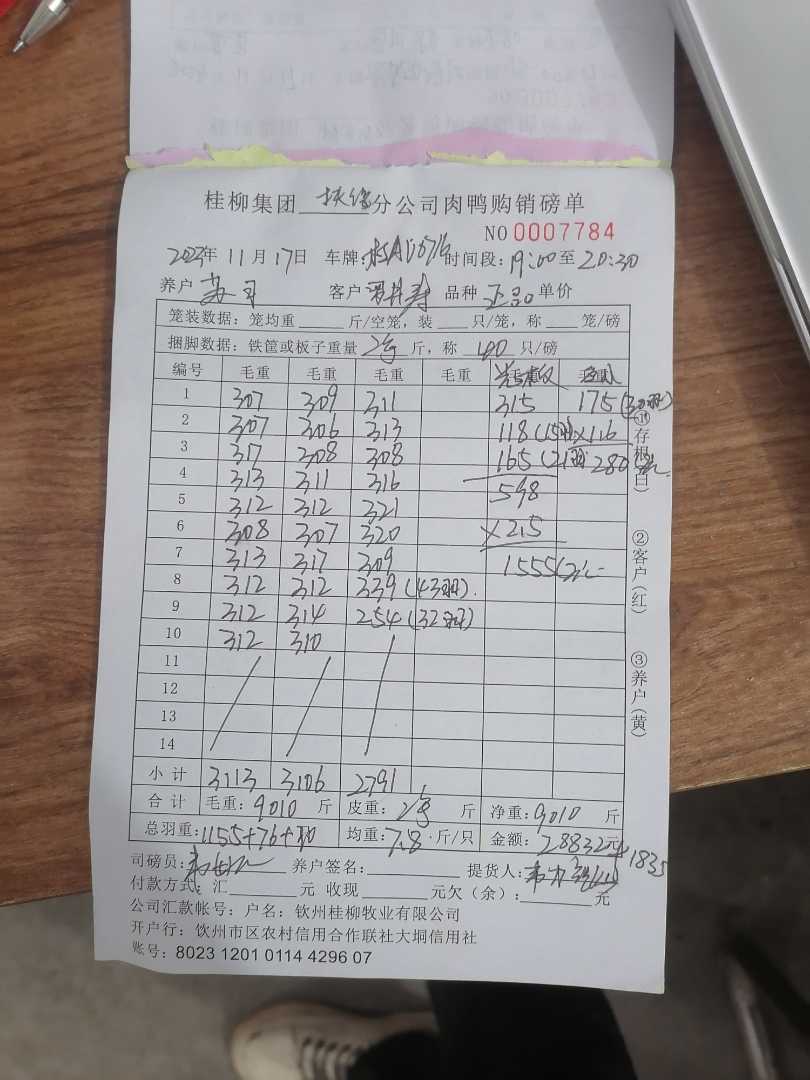 桂柳集团 扶绥 分公司肉鸭购销磅单
NO 0007784
2023年 11月17日 车牌: 时间段: 19:00至20:30
养户 苏 客户 寿 品种 正品 单价
笼装数据: 笼均重 斤/空笼, 装 只/笼, 称 笼/磅
捆脚数据: 铁筐或板子重量 斤, 称 40 只/磅
编号 毛重 毛重 毛重 毛重
1 307 309 311 315 175 (30羽)
2 307 306 313 118 (15羽) ×1.6
3 317 308 308 165 (21羽) 280元
4 313 311 316 598
5 312 312 321
6 308 307 320 ×2.5
7 313 317 309 1555元
8 312 312 339 (43羽)
9 312 314 254 (32羽)
10 312 310
11
12
13
14
小计 3113 3106 2791
合计 毛重: 9010 斤 皮重: 斤 净重: 9010 斤
总羽重: 1155+76+30 均重: 7.8 斤/只 金额: 28832元+1835
司磅员: 养户签名: 提货人:
付款方式: 汇 元 收现 元欠(余): 元
公司汇款帐号: 户名: 钦州桂柳牧业有限公司
开户行: 钦州市区农村信用合作联社大垌信用社
账号: 8023 1201 0114 4296 07
①存根(白)
②客户(红)
③养户(黄)